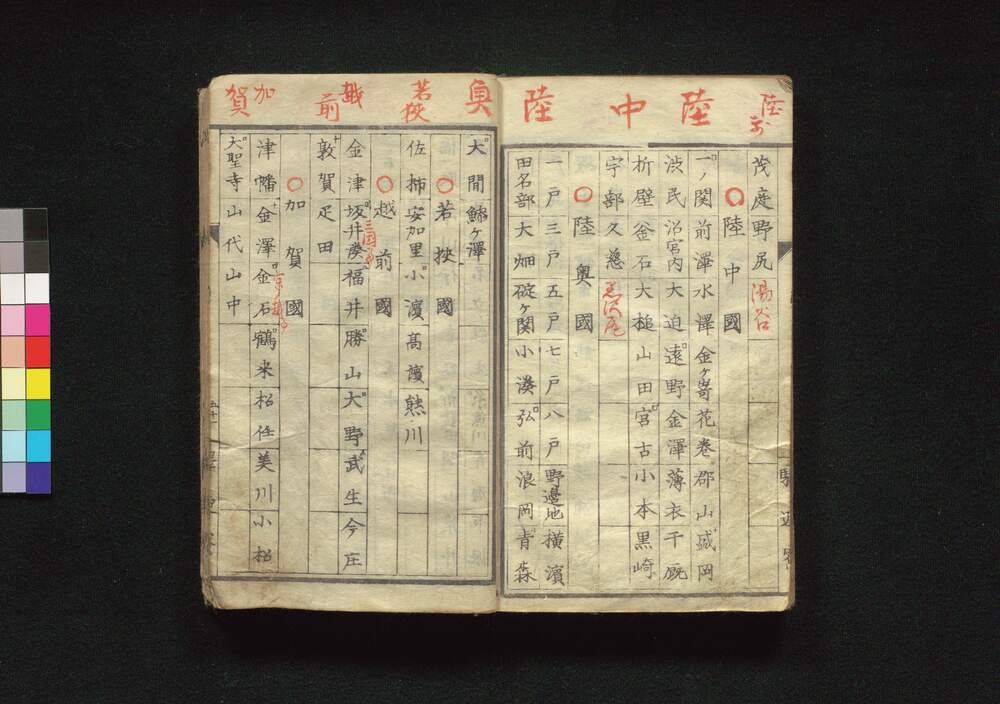 陸前
茂庭野尻湯谷
陸中
○陸中國
一ノ関前澤水澤金ヶ嵜花巻郡山盛岡
渋民沼宮内大迫遠野金澤薄衣千厩
折壁釜石大槌山田宮古小本黒崎
宇部久慈
陸奥
○陸奥國
一戸三戸五戸七戸八戸野邊地横濱
田名部大畑碇ヶ関小湊弘前浪岡青森
大間鰺ヶ澤
若狹
○若狹國
佐柿安加里小濱髙濱熊川
越前
○越前國
金津坂井湊福井勝山大野武生今庄
敦賀疋田
加賀
○加賀國
津幡金澤金石鶴来松任美川小松
大聖寺山代山中